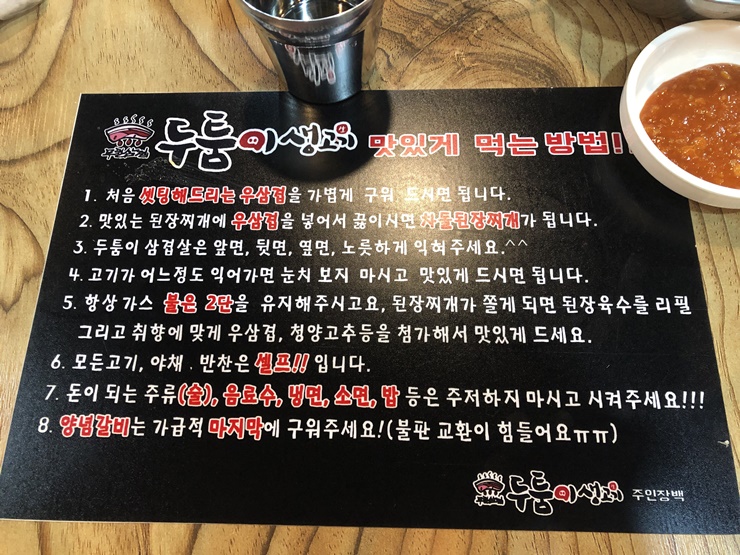 두툼이생고기 맛있게 먹는 방법!!
1. 처음 셋팅해드리는 우삼겹을 가볍게 구워 드시면 됩니다.
2. 맛있는 된장찌개에 우삼겹을 넣어서 끓이시면 차돌된장찌개가 됩니다.
3. 두툼이 삼겹살은 앞면, 뒷면, 옆면, 노릇하게 익혀주세요.^^
4. 고기가 어느정도 익어가면 눈치 보지 마시고 맛있게 드시면 됩니다.
5. 항상가스 불은 2단을 유지해주시고요, 된장찌개가 쫄게 되면 된장육수를 리필
그리고 취향에 맞게 우삼겹, 청양고추등을 첨가해서 맛있게 드세요.
6. 모든고기, 야채 . 반찬은 셀프!! 입니다.
7. 돈이 되는 주류(술), 음료수, 냉면, 소면, 밥 등은 주저하지 마시고 시켜주세요!!!
8. 양념갈비는 가급적 마지막에 구워주세요!(불판 교환이 힘들어요ㅠㅠ)
두툼이생고기 주인장백